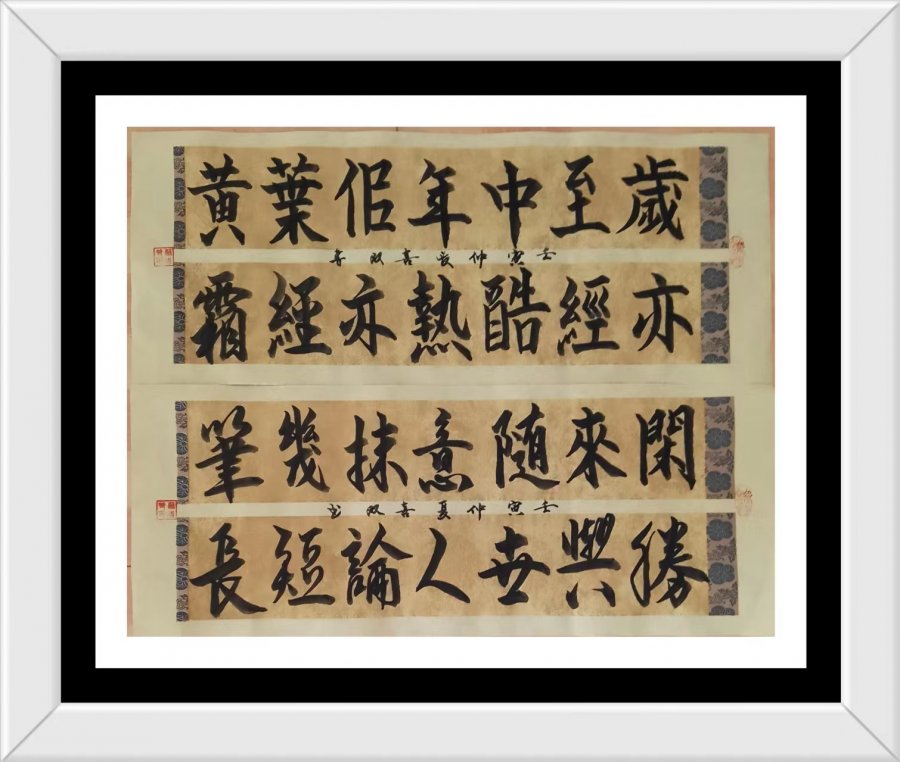 歲至中年佀葉黃
壬寅仲夏喜双書
亦經酷熱亦經霜
閑來随意抹幾筆
壬寅仲夏喜双书
勝與世人論短長